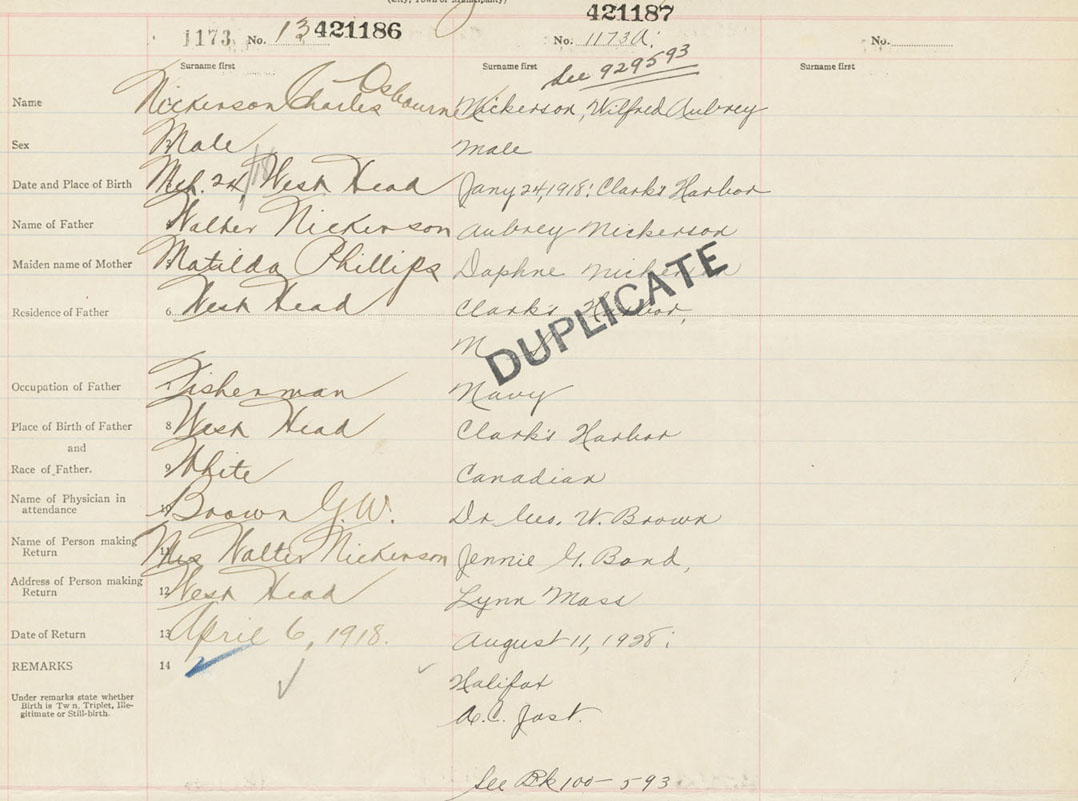 (City, Town or Municipality)
421187
1173 No. 13 421186
No. 1173a.
No.
Surname first
Surname first See 929593
Surname first
Name Nickerson Charles Osbourne Nickerson, Wilfred Aubrey
Sex Male Male
Date and Place of Birth Mch. 24, /18 West Head Jany 24, 1918: Clark's Harbor
Name of Father Walter Nickerson Aubrey Nickerson
Maiden name of Mother Matilda Phillips Daphne
Residence of Father 6 West Head Clark's Harbor,
DUPLICATE
Occupation of Father Fisherman Navy
Place of Birth of Father 8 West Head Clark's Harbor
and
Race of Father. 9 White Canadian
Name of Physician in
attendance 10 Brown G. W. Dr Geo. W. Brown
Name of Person making
Return 11 Mrs Walter Nickerson Jennie G. Bond,
Address of Person making
Return 12 West Head Lynn Mass
Date of Return 13 April 6, 1918. August 11, 1928:
REMARKS 14
Halifax
Under remarks state whether
Birth is Twn, Triplet, Ille-
gitimate or Still-birth.
A.C. Jost.
See Bk 100-593